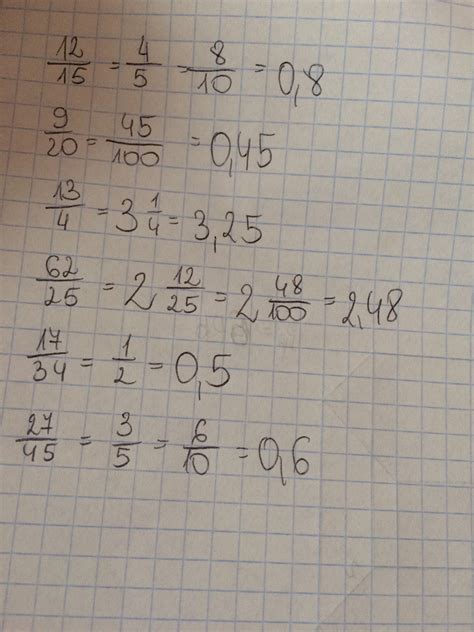 12/15 = 4/5 = 8/10 = 0,8
9/20 = 45/100 = 0,45
13/4 = 3 1/4 = 3,25
62/25 = 2 12/25 = 2 48/100 = 2,48
17/34 = 1/2 = 0,5
27/45 = 3/5 = 6/10 = 0,6